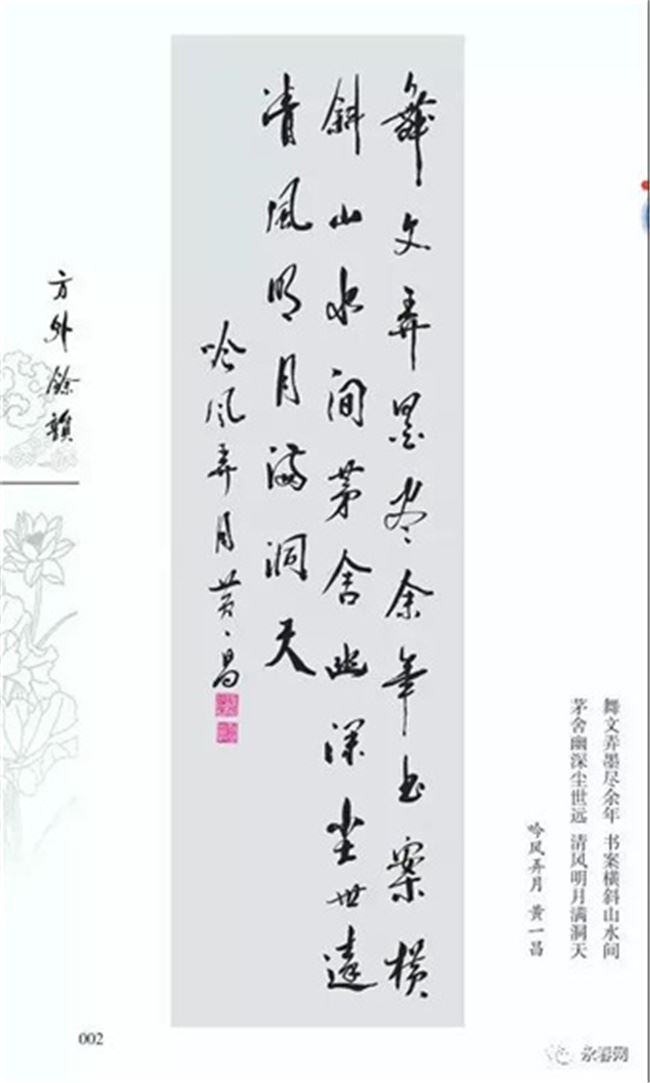 舞文弄墨尽余年书案横
斜山水间茅舍幽深尘世遠
清風明月满洞天
吟风弄月黄一昌
方外餘韻
舞文弄墨尽余年 书案横斜山水间
茅舍幽深尘世远 清风明月满洞天
吟风弄月 黄一昌
002
永春网